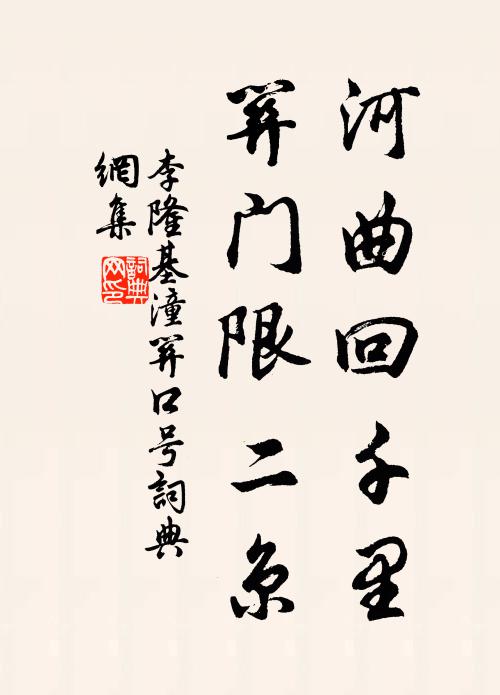 河曲回千里
关门限二京
李隆基潼关口号詞典
網集
詞典
网印